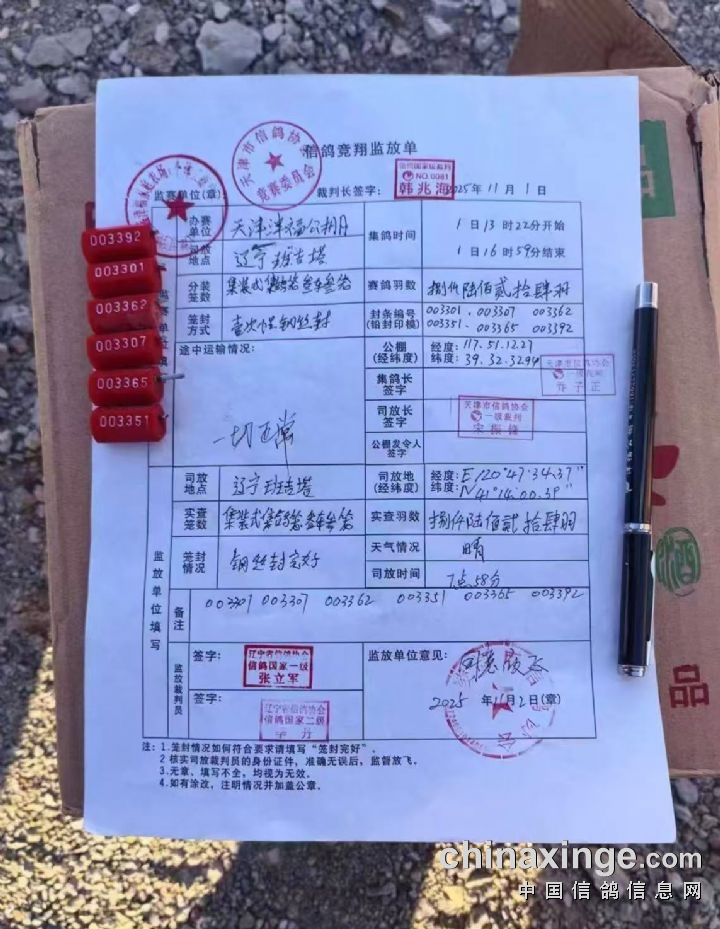 信鸽竞翔监放单
天津市信鸽协会
竞赛委员会
监赛单位(章)
裁判长签字：
信鸽国家级裁判
NO.0081
韩兆海
2025年11月1日
003392
003301
003362
003307
003365
003351
办赛单位
天津津福公棚
集鸽时间
1日13时22分开始
1日16时59分结束
司放地点
辽宁班吉塔
分装笼数
集装式
赛鸽羽数
捌仟陆佰贰拾肆羽
笼封方式
壹次性钢丝封
封条编号(铅封印模)
003301、003307 003362
003351、003365 003392
途中运输情况：
一切正常
公棚(经纬度)
经度：117.51.1227
纬度：39.32.3294
集鸽长签字
天津市信鸽协会
一级裁判
司放长签字
天津市信鸽协会
一级裁判
公棚发令人签字
监放单位填写
司放地点
辽宁班吉塔
司放地(经纬度)
经度：E120°47'34.37"
纬度：N41°14'00.39"
实查笼数
集装式
实查羽数
捌仟陆佰贰拾肆羽
笼封情况
钢丝封完好
天气情况
晴
司放时间
7点58分
备注
003301 003307 003362 003351 003365 003392
监放裁判员
签字：
辽宁省信鸽协会
信鸽国家一级
张立军
签字：
辽宁省信鸽协会
信鸽国家二级
监放单位意见：
同意放飞
2025年11月2日(章)
注：1.笼封情况如何符合要求请填写“笼封完好”。
2 核实司放裁判员的身份证件，准确无误后，监督放飞。
3.无章、填写不全，均视为无效。
4.如有涂改，注明情况并加盖公章。
品
chinaxinge.com
中国信鸽信息网